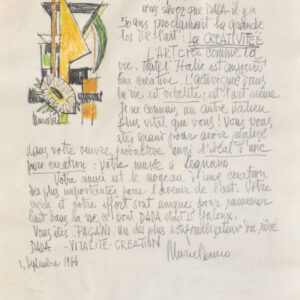 vous savez que DADA il y a
50 ans proclamait la grande
loi de l'art : la CRÉATIVITÉ
L'ART crée comme la
vie. l'Italie est aujourd'hui
créative. L'
la vie est vitalité : est l'art même
Je ne connais un autre italien
plus vital que vous! Vous vous
êtes grand pour avoir réalisé
dans votre oeuvre aussi l'idéal d'une
pure creation : votre musée a Legnano
Votre musée est le noyeau d'une creation
la plus importante pour l'avenir de l'art. Votre
esprit et votre effort sont uniques pour ramener
l'art dans la vie, ce dont DADA était si jaloux.
Vous êtes PAGANI un des plus du rêve
DADA - VITALITÉ - CREATION
1, Septembre 1966
Marcel Janco